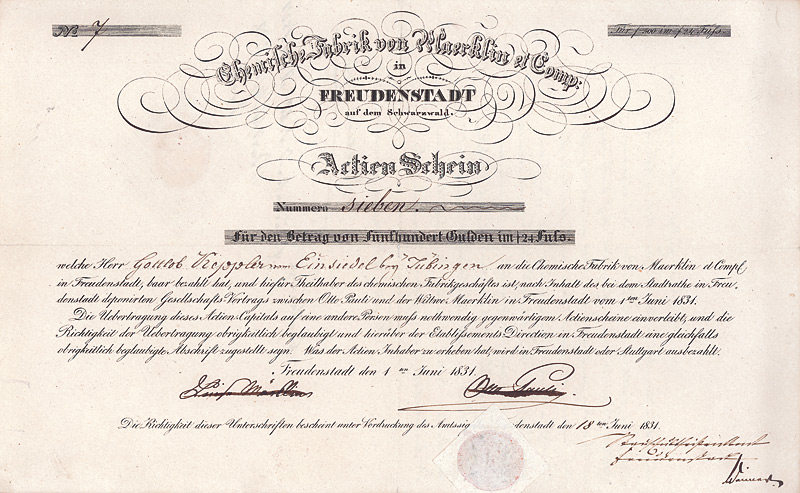 No 7
Für f 500 im f 24 Fuss.
Chemische Fabrik von Maerklin et Comp:
in
FREUDENSTADT
auf dem Schwarzwald.
Actien Schein
Nummero sieben.
Für den Betrag von Fünfhundert Gulden im f 24 Fuss.
welche Herr Gottlob Keppler vom Einsiedel bey Tübingen an die Chemische Fabrik von Maerklin et Comp.
in Freudenstadt, baar bezahlt hat, und hiefür Theilhaber des chemischen Fabrikgeschäftes ist, nach Inhalt des bei dem Stadtrathe in Freu,
denstadt deponirten Gesellschafts Vertrags zwischen Otto Pauli und der Wittwe Maerklin in Freudenstadt vom 1ten Juni 1831.
Die Uebertragung dieses Actien Capitals auf eine andere Person muss nothwendig gegenwärtigem Actienscheine einverleibt, und die
Richtigkeit der Uebertragung obrigkeitlich beglaubigt und hierüber der Etablissements Direction in Freudenstadt eine gleichfalls
obrigkeitlich beglaubigte Abschrift zugestellt seyn. Was der Actien Inhaber zu erheben hat, wird in Freudenstadt oder Stuttgart ausbezahlt.
Freudenstadt den 1ten Juni 1831.
Otto Pauli
Die Richtigkeit dieser Unterschriften bescheint unter Vordruckung des Amtssig denstadt den 18ten Juni 1831.
Freudenstadt